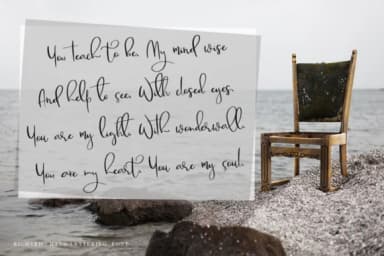 You teach to be. My mind wise
And help to see. With closed eyes.
You are my light. With wonderwall.
You are my heart. You are my soul.
HANDLETTERING FONT